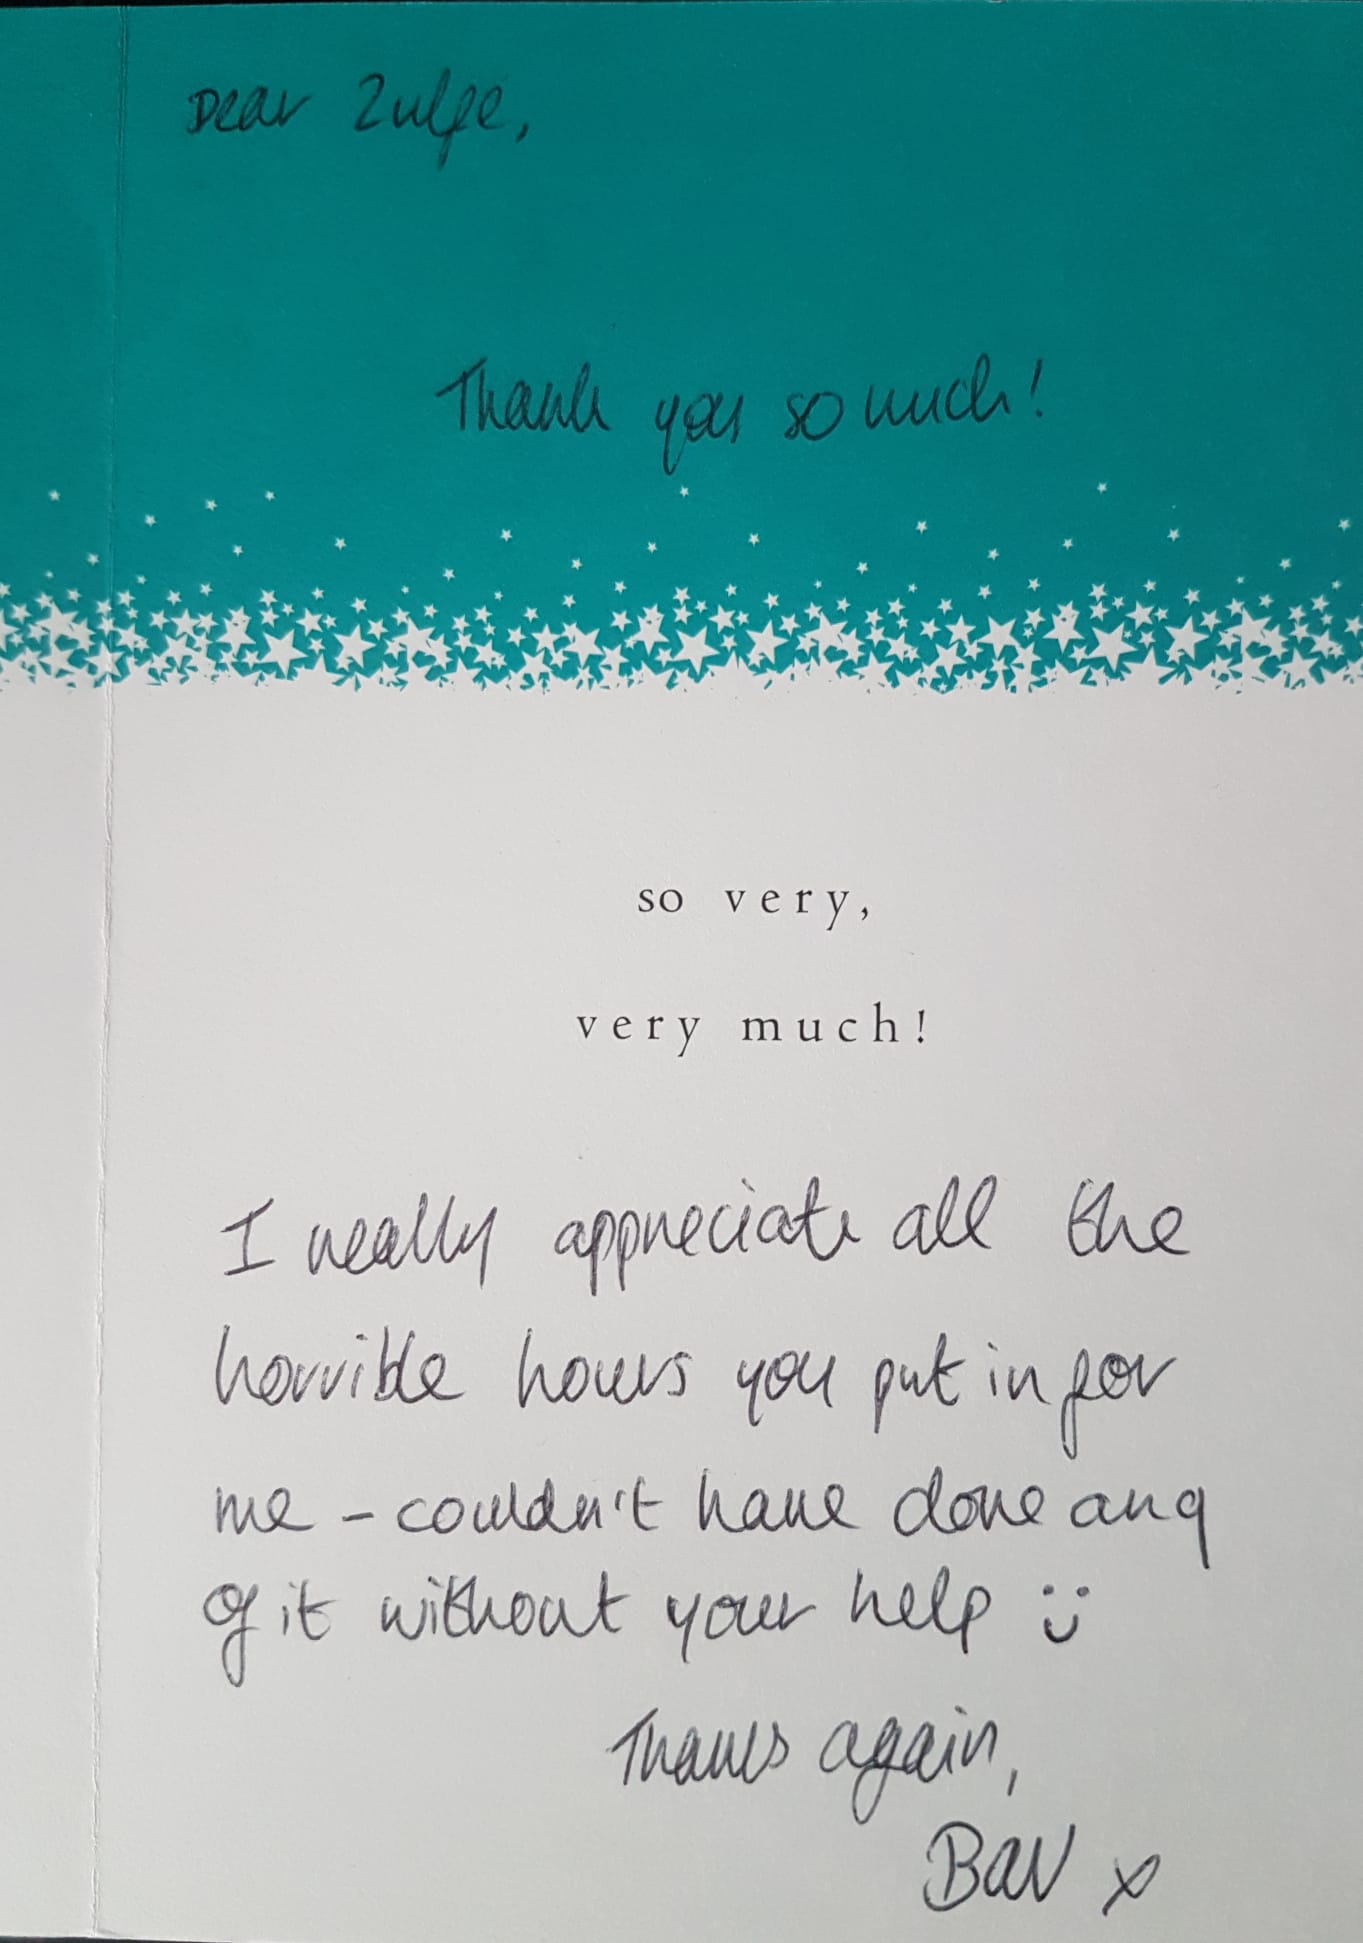 Dear Zulfe,
Thank you so much!
so very,
very much!
I really appreciate all the
horrible hours you put in for
me - couldn't have done any
of it without your help :)
Thanks again,
Bav x